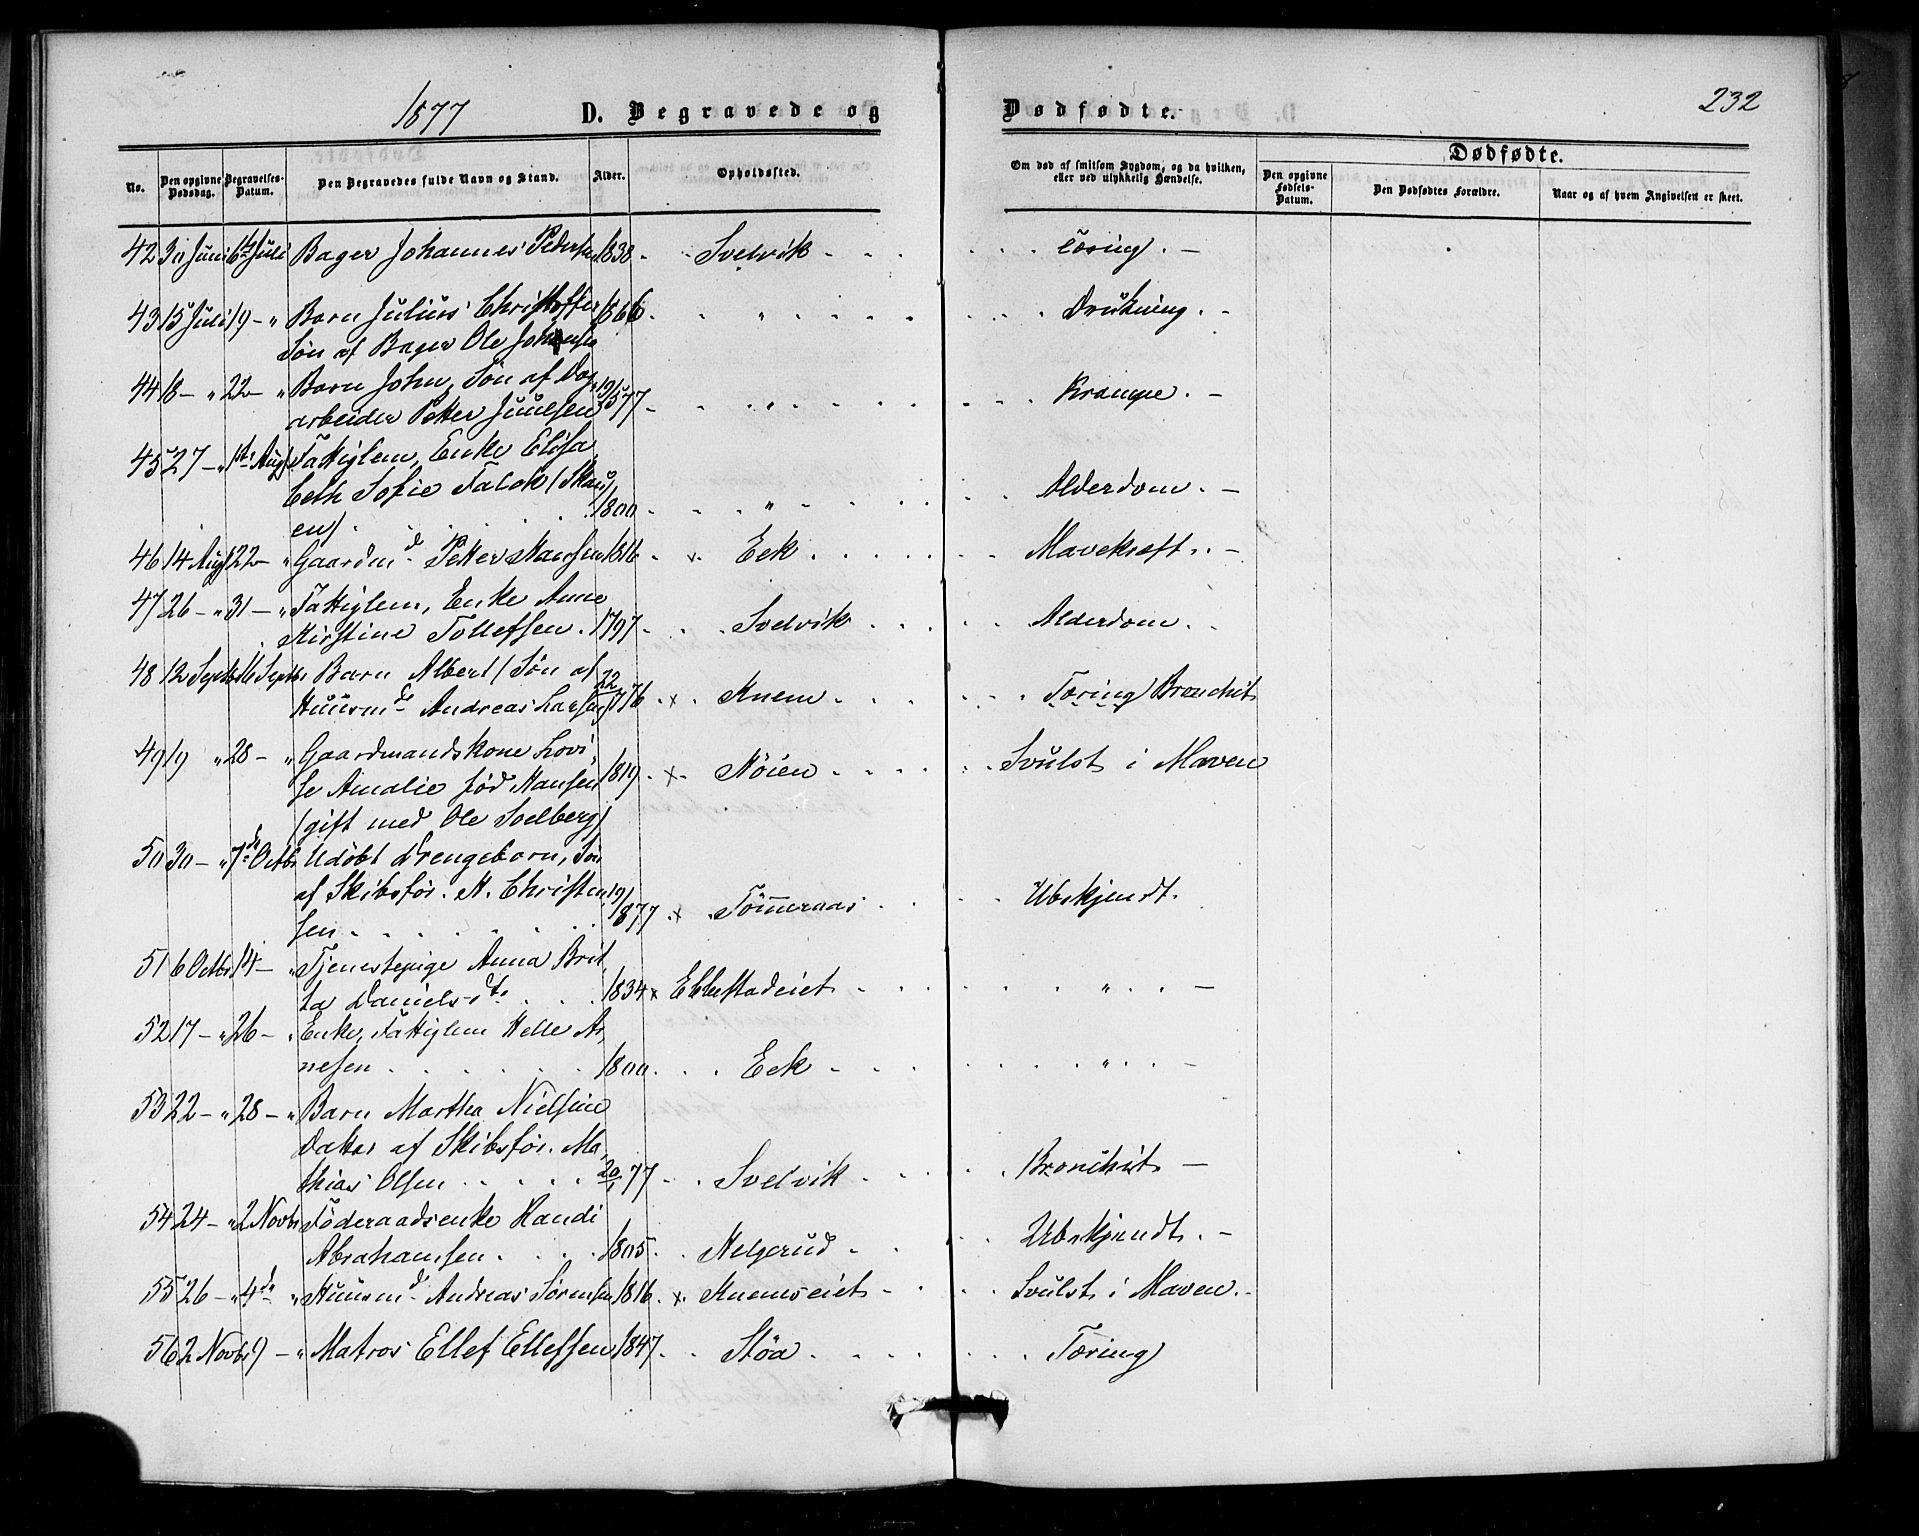 1877 D. Begravede og Dødfødte. 232
No. Den opgivne Dødsdag. Begravelses-Datum. Den Begravedes fulde Navn og Stand. Alder. Opholdssted. Om død af smitsom Sygdom, og da hvilken, eller ved ulykkelig Hændelse. Dødfødte.
Den opgivne Fødsels-Datum. Den Dødfødtes Forældre. Naar og af hvem Angivelsen er skeet.
42 30 Juni 6te Juli Bager Johannes Pedersen 1838 Svelvik Tæring. -
43 15 Juli 19 - " Barn Julius Christoffer 1866 " Drukning. -
Søn af Bager Ole Johansen
44 18 - " 22 - " Barn John, Søn af Dag- 19/5 77 " Krampe. -
arbeider Petter Juuelsen
45 27 - " 1ste Aug. Fattiglem, Enke Elisa
beth Sofie Falck (Skau 1800 " Alderdom. -
en)
46 14 Aug 22 - " Gaardmd. Petter Hansen 1816 x Eek Mavekræft. -
47 26 - " 31 - " Fattiglem, Enke Anne
Kirstine Tollefsen. 1797 Svelvik Alderdom.
48 12 Septbr 16 Septbr Barn Albert (Søn af
Huusmd. Andreas Larsen 22/7 76 x Knem Tæring Bronchit
49 19 " 28 - " Gaardmandskone Lovi-
se Amalie fød Hansen 1819 x Nøien Svulst i Maven
(gift med Ole Solberg)
50 30 - " 7de Octbr Udøbt Drengebarn, Søn
af Skibsfør. N. Christen 19/ 1877 x Tømmeraas Ubekjendt.
sen
51 6 Octbr 14 - " Tjenestepige Anna Brit
ta Danielsdt. 1834 x Ebbestadeiet " -
52 17 - " 26 - " Enke, Fattiglem Helle Ar
nesen 1800 Eek " -
53 22 - " 28 - " Barn Martha Nielsine
Datter af Skibsfør. Ma
thias Olsen 20/1 77 Svelvik Bronchit -
54 24 - " 2 Novbr Føderaadsenke Randi
Abrahamsen 1805 Helgerud Ubekjendt. -
55 26 - " 4de " Huusmd. Andreas Sørensen 1816 x Knemseiet Svulst i Maven. -
56 2 Novbr 9 - " Matros Ellef Ellefsen 1847 Støa Tæring